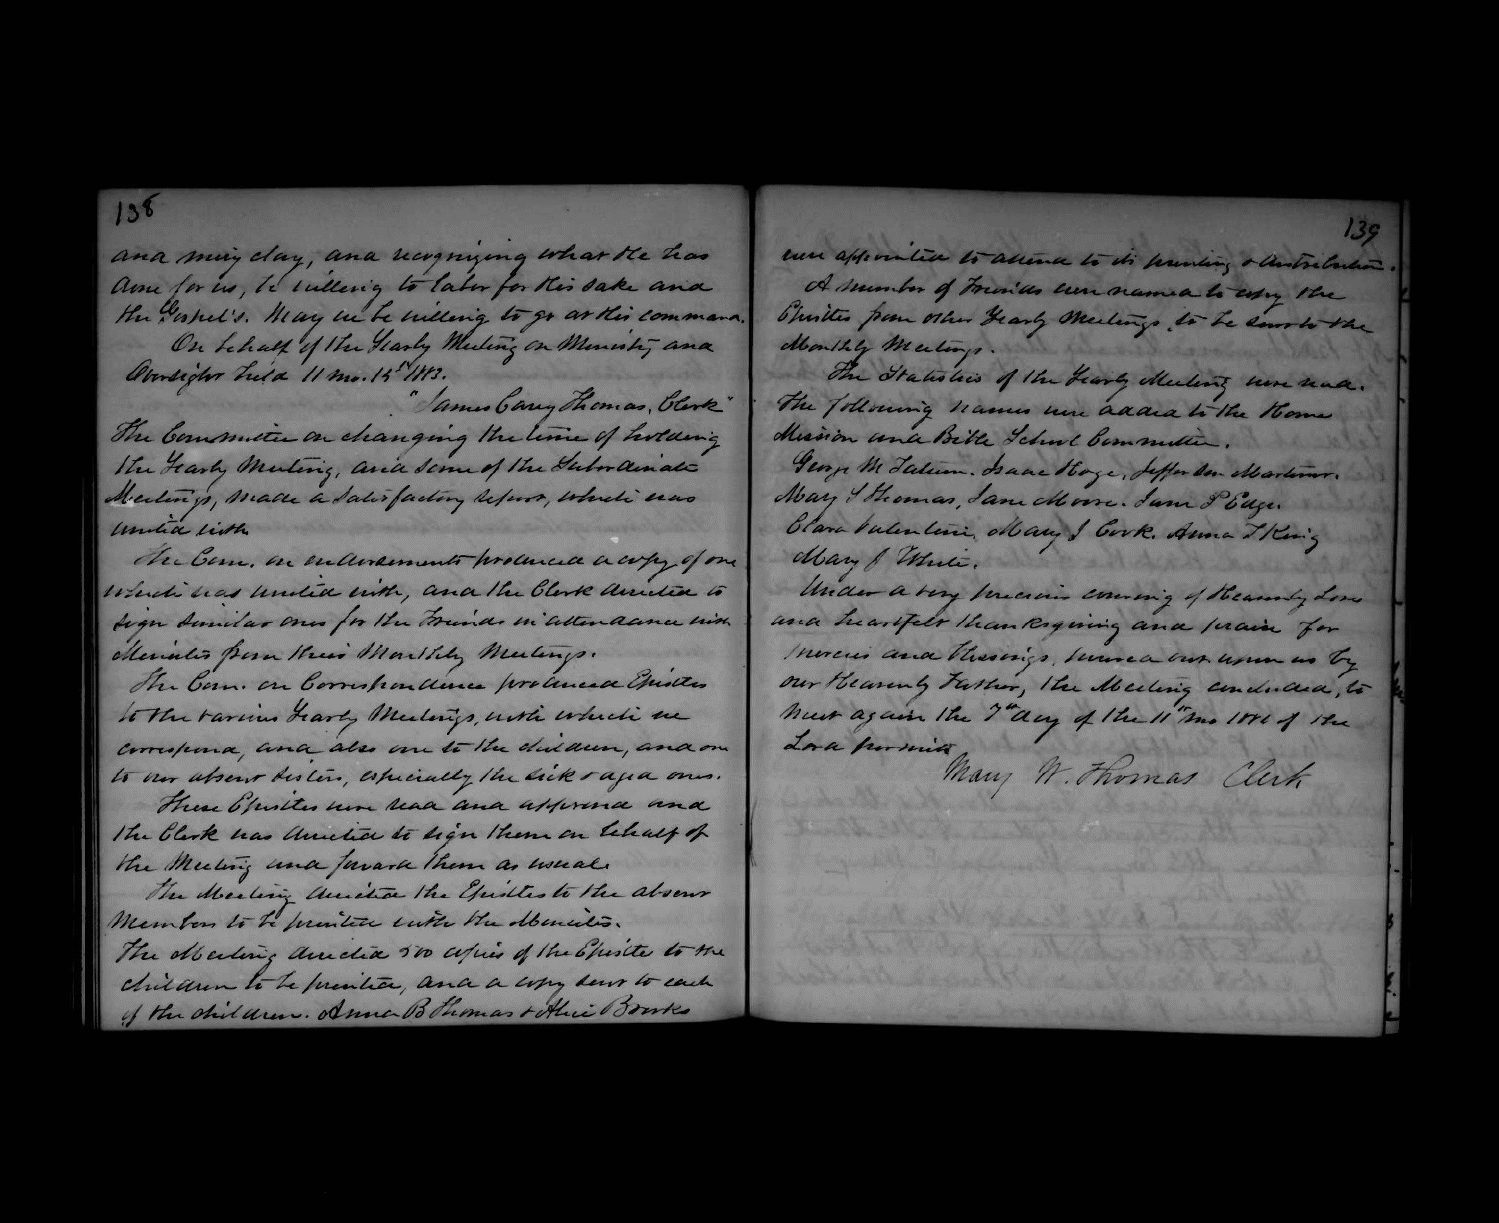 138
and miry clay, and recognizing what He has
done for us, be willing to labor for His sake and
the Gospel's. May we be willing to go at His command.
On behalf of the Yearly Meeting on Ministry and
Oversight held 11 mo. 15th 1883.
"James Carey Thomas, Clerk"
The Committee on changing the time of holding
the Yearly Meeting, and some of the Subordinate
Meetings, made a satisfactory report, which was
united with.
The Com. on endorsements produced a copy of one
which was united with, and the Clerk directed to
sign similar ones for the Friends in attendance with
Minutes from their Monthly Meetings.
The Com. on Correspondence produced Epistles
to the various Yearly Meetings, with which we
correspond, and also one to the children, and one
to our absent sisters, especially the sick & aged ones.
These Epistles were read and approved and
the Clerk was directed to sign them on behalf of
the Meeting and forward them as usual.
The Meeting directed the Epistles to the absent
Members to be printed with the Minutes.
The Meeting directed 500 copies of the Epistle to the
children to be printed, and a copy sent to each
of the children. Anna B Thomas & Alice Brooks
139
were appointed to attend to its printing & distribution.
A number of Friends were named to copy the
Epistles from other Yearly Meetings, to be sent to the
Monthly Meetings.
The Statistics of the Yearly Meeting were read.
The following names were added to the Home
Mission and Bible School Committee.
George M Tatum. Isaac Hoge, Jefferson
Mary S Thomas, Jane Moore. Jane P Edge.
Clara Valentine, Mary J Cook. Anna T King
Mary J White.
Under a very precious covering of Heavenly Love
and heartfelt thanksgiving and praise for
mercies and blessings, poured out upon us by
our Heavenly Father, the Meeting concluded, to
meet again the 7th day of the 11th mo of the
Lord permits
Mary W. Thomas Clerk